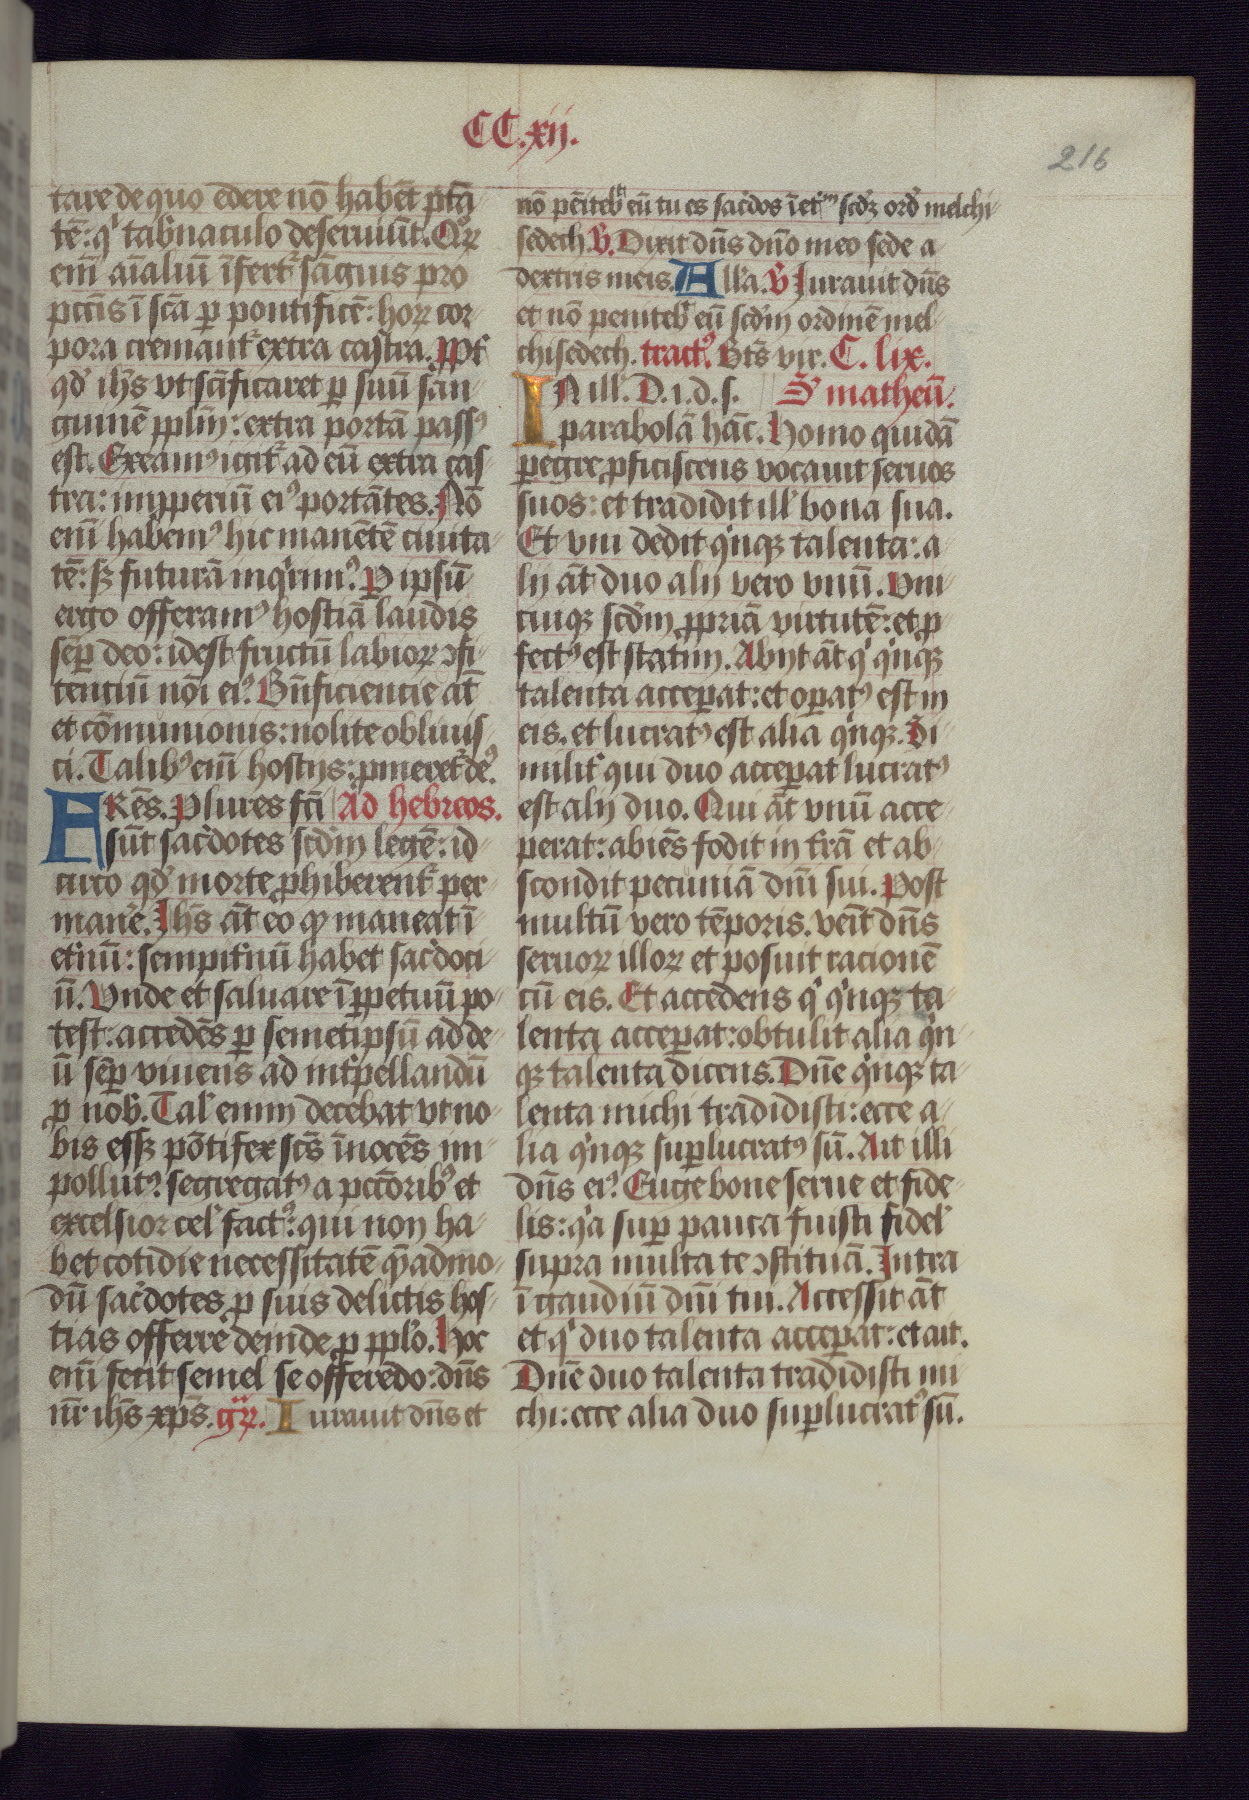 CC.xij.
216
tare de quo edere nō habēt ptā
tē: qͥ tab̾naculo deseruiūt. Qͦꝝ
eni᷒ aīaliū īfert᷑ sāguis pro
pctīs ī scā ꝑ pontificē: horꝝ cor
pora cremant᷑ extra castra. ꝓpt᷑
qd̾ ih̄s vt scīficaret ꝑ suū san
guinē pplm̄: extra portā passꝰ
est. Exeamꝰ igit᷑ ad eū extra cas
tra: imꝓperiū eiꝰ portātes. Nō
eni᷒ habemꝰ hic manētē ciuita
tē: sꝫ futurā inqͥrimꝰ. Ꝑ ipsū
ergo offeramꝰ hostiā laudis
sēꝑ deo: id est fructū labioꝝ ꝯfi
tenciū noī eiꝰ. Bn̄ficiencie āt
et cōmunionis: nolite obliuis
ci. Talibꝰ eni᷒ hostijs: ꝓmeret᷑ deꝰ.
FRēs. Plures fcī Ad hebreos.
sūt sac̾dotes scd̾m legē: id
circo qd̾ morte ꝓhiberent᷑ per
mane᷑. Ih̄s āt eo ꝙ maneat ī
et̾nū: sempit̾nū habet sac̾doci
ū. Vnde et saluare ī ꝑpetuū po
test: accedēs ꝑ semetipsū ad de
ū sēꝑ viuens ad int̾pellandū
ꝓ nob̾. Tal̾ enim decebat vt no
bis essꝫ pōtifex scs̄ īnocēs im
pollutꝰ. segregatꝰ a pctōribꝰ et
excelsior cel̾ factꝰ: qui non ha
bet cotidie necessitatē qͣ̄admo
dū sac̾dotes ꝓ suis delictis hos
tias offerre deinde ꝓ ppl̾o. Hoc
eni᷒ fecit semel se offerēdo: dn̄s
nr̄ ih̄s xp̄s. gͬꝝ. Iurauit dn̄s et
nō pēiteb̾ eū tu es sac̾dos ī et̾ᵐ scd̾ꝫ ord̾ melchi
sedech. V̾. Dixit dn̄s dn̄o meo sede a
dextris meis. All̾a. V̾ Iurauit dn̄s
et nō peniteb̾ eū scd̾m ordinē mel
chisedech. tractꝰ. Bt̄s vir. C. lix.
IN ill̾. D. i. d. s. S᷑ matheū.
parabolā hāc. Homo quidā
peregre ꝓficiscens vocauit seruos
suos: et tradidit ill̾ bona sua.
Et vni dedit qͥnqꝫ talenta: a
lij āt duo alij vero vnū. Vni
cuiqꝫ scd̾m ꝓpriā virtutē: et ꝓ
fectꝰ est statim. Abijt āt qͥ qͥnqꝫ
talenta acceꝑat: et oꝑatꝰ est in
eis. et lucratꝰ est alia qͥnqꝫ. Si
milit̾ qui duo acceꝑat lucratꝰ
est alij duo. Qui āt vnū acce
perat: abiēs fodit in t̾rā et ab
scondit pecuniā dn̄i sui. Post
multū vero tēporis. venīt dn̄s
seruoꝝ illoꝝ et posuit racionē
cū eis. Et accedens qͥ qͥnqꝫ ta
lenta acceꝑat: obtulit alia qͥn
qꝫ talenta dicens. Dn̄e qͥnqꝫ ta
lenta michi tradidisti: ecce a
lia qͥnqꝫ suꝑlucratꝰ sū. Ait illi
dn̄s eiꝰ. Euge bone serue et fide
lis: qͥa suꝑ pauca fuisti fidel̾
supra multa te ꝯstituā. Intra
ī gaudiū dn̄i tui. Accessit āt
et qͥ duo talenta acceꝑat: et ait.
Dn̄e duo talenta tradidisti mi
chi: ecce alia duo suꝑlucratꝰ sū.